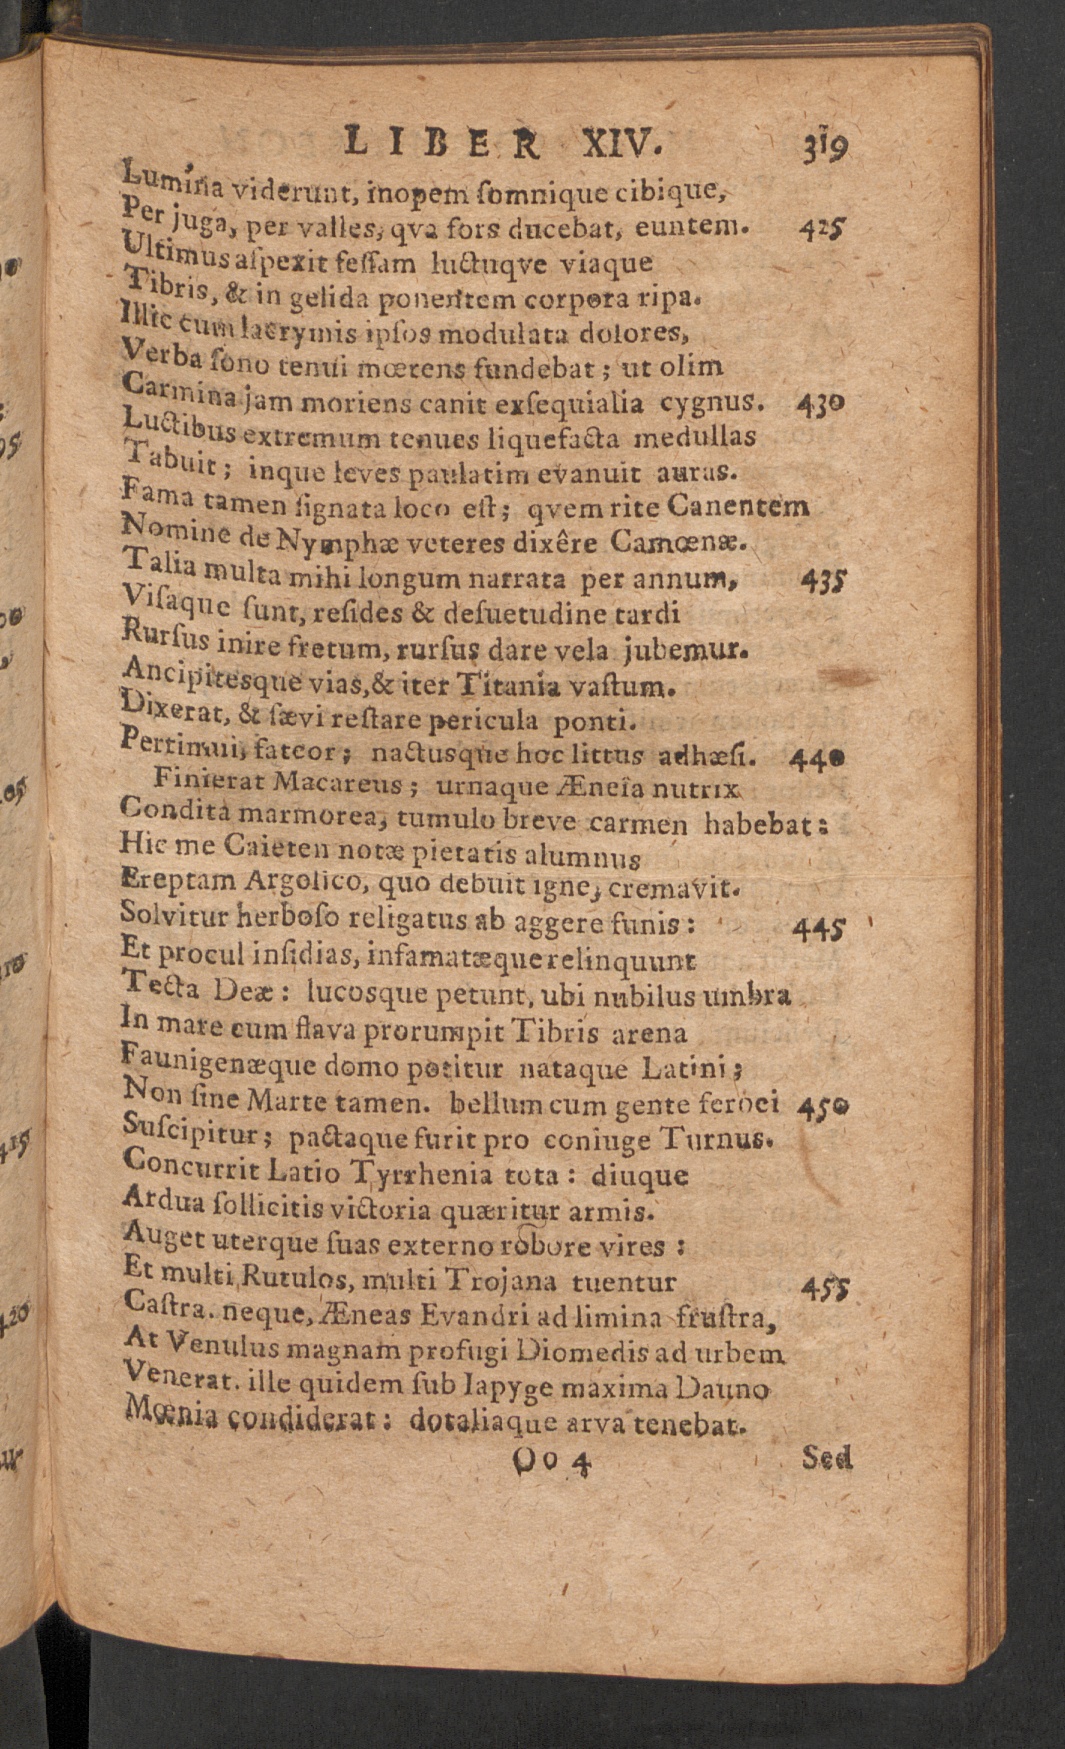 LIBER XIV. 319
Lumina viderunt, inopem ſomnique cibique,
Per juga, per valles, qva fors ducebat, euntem. 425
Ultimus aſpexit feſſam luctuqve viaque
Tibris, & in gelida ponentem corpora ripa.
Illic cum lacrymis ipſos modulata dolores,
Verba ſono tenui mœrens fundebat; ut olim
Carmina jam moriens canit exſequialia cygnus. 430
Luctibus extremum tenues liquefacta medullas
Tabuit; inque leves paulatim evanuit auras.
Fama tamen ſignata loco eſt; qvem rite Canentem
Nomine de Nymphæ veteres dixêre Camœnæ.
Talia multa mihi longum narrata per annum, 435
Viſaque ſunt, reſides & deſuetudine tardi
Rurſus inire fretum, rurſus dare vela jubemur.
Ancipitesque vias, & iter Titania vaſtum.
Dixerat, & ſævi reſtare pericula ponti.
Pertimui, fateor; nactusque hoc littus adhæſi. 440
Finierat Macareus; urnaque Æneïa nutrix
Condita marmorea, tumulo breve carmen habebat:
Hic me Caieten notæ pietatis alumnus
Ereptam Argolico, quo debuit igne, cremavit.
Solvitur herboſo religatus ab aggere funis: 445
Et procul inſidias, infamatæque relinquunt
Tecta Deæ: lucosque petunt, ubi nubilus umbra
In mare cum flava prorumpit Tibris arena
Faunigenæque domo potitur nataque Latini;
Non ſine Marte tamen. bellum cum gente feroci 450
Suſcipitur; pactaque furit pro coniuge Turnus.
Concurrit Latio Tyrrhenia tota: diuque
Ardua ſollicitis victoria quæritur armis.
Auget uterque ſuas externo robore vires:
Et multi Rutulos, multi Trojana tuentur 455
Caſtra. neque, Æneas Evandri ad limina fruſtra,
At Venulus magnam profugi Diomedis ad urbem
Venerat. ille quidem ſub Iapyge maxima Dauno
Mœnia condiderat: dotaliaque arva tenebat.
Oo 4 Sed